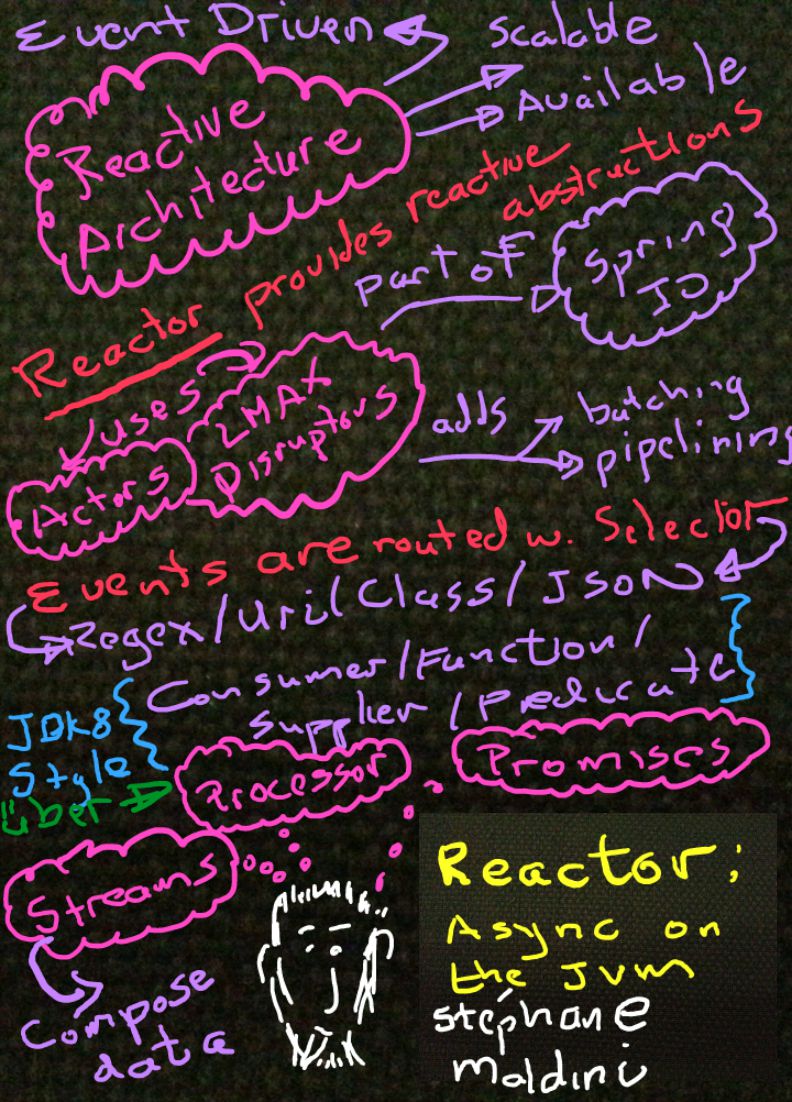 Event Driven
Scalable
Available
Reactive
Architecture
Reactor provides reactive
abstructions
part of
Spring
IO
uses
LMAX
Disruptors
Actors
adds
batching
pipelining
Events are routed w. Selector
Regex/Uri/Class/JSON
Consumer/Function/
Supplier/Predicate
JDK8
Style
über
Processor
Promises
Streams
Compose
data
Reactor:
Async on
the JVM
stéphane
maldini